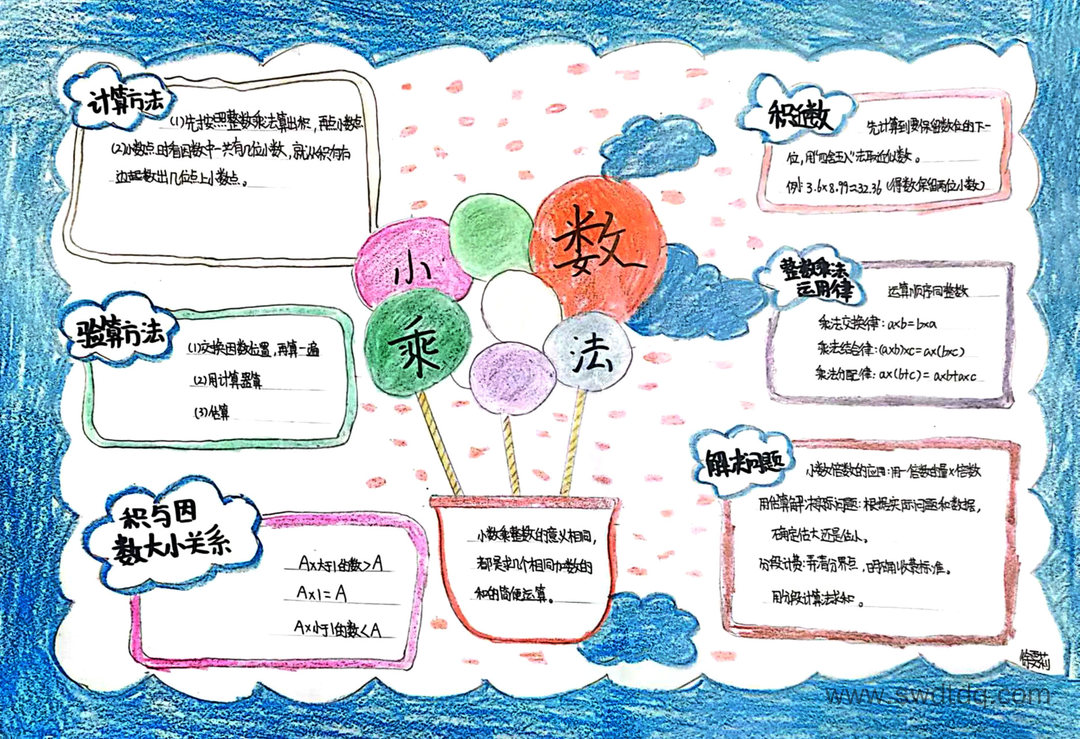 计算方法
(1)先按照整数乘法算出积，再点小数点
(2)小数点时看因数中一共有几位小数，就从积的右
边起数出几位点上小数点。
验算方法
(1)交换因数位置，再算一遍
(2)用计算器算
(3)估算
积与因
数大小关系
A×大于1的数>A
A×1=A
A×小于1的数<A
小
数
乘
法
小数乘整数的意义相同，
都是求几个相同加数的
和的简便运算。
积近数
先计算到要保留数位的下一
位，用"四舍五入"法取近似数。
例:3.6×8.99≈32.36(得数保留两位小数)
整数乘法
运用律
运算顺序同整数
乘法交换律:a×b=b×a
乘法结合律:(a×b)×c=a×(b×c)
乘法分配律:a×(b+c)=a×b+a×c
解决问题
小数倍数的应用:用一倍数的量×倍数
用估算解决实际问题:根据实际问题和数据，
确定估大还是估小。
分段计费:弄清分界点，明确收费标准。
用分段计算法求和。
www.swdtdq.com